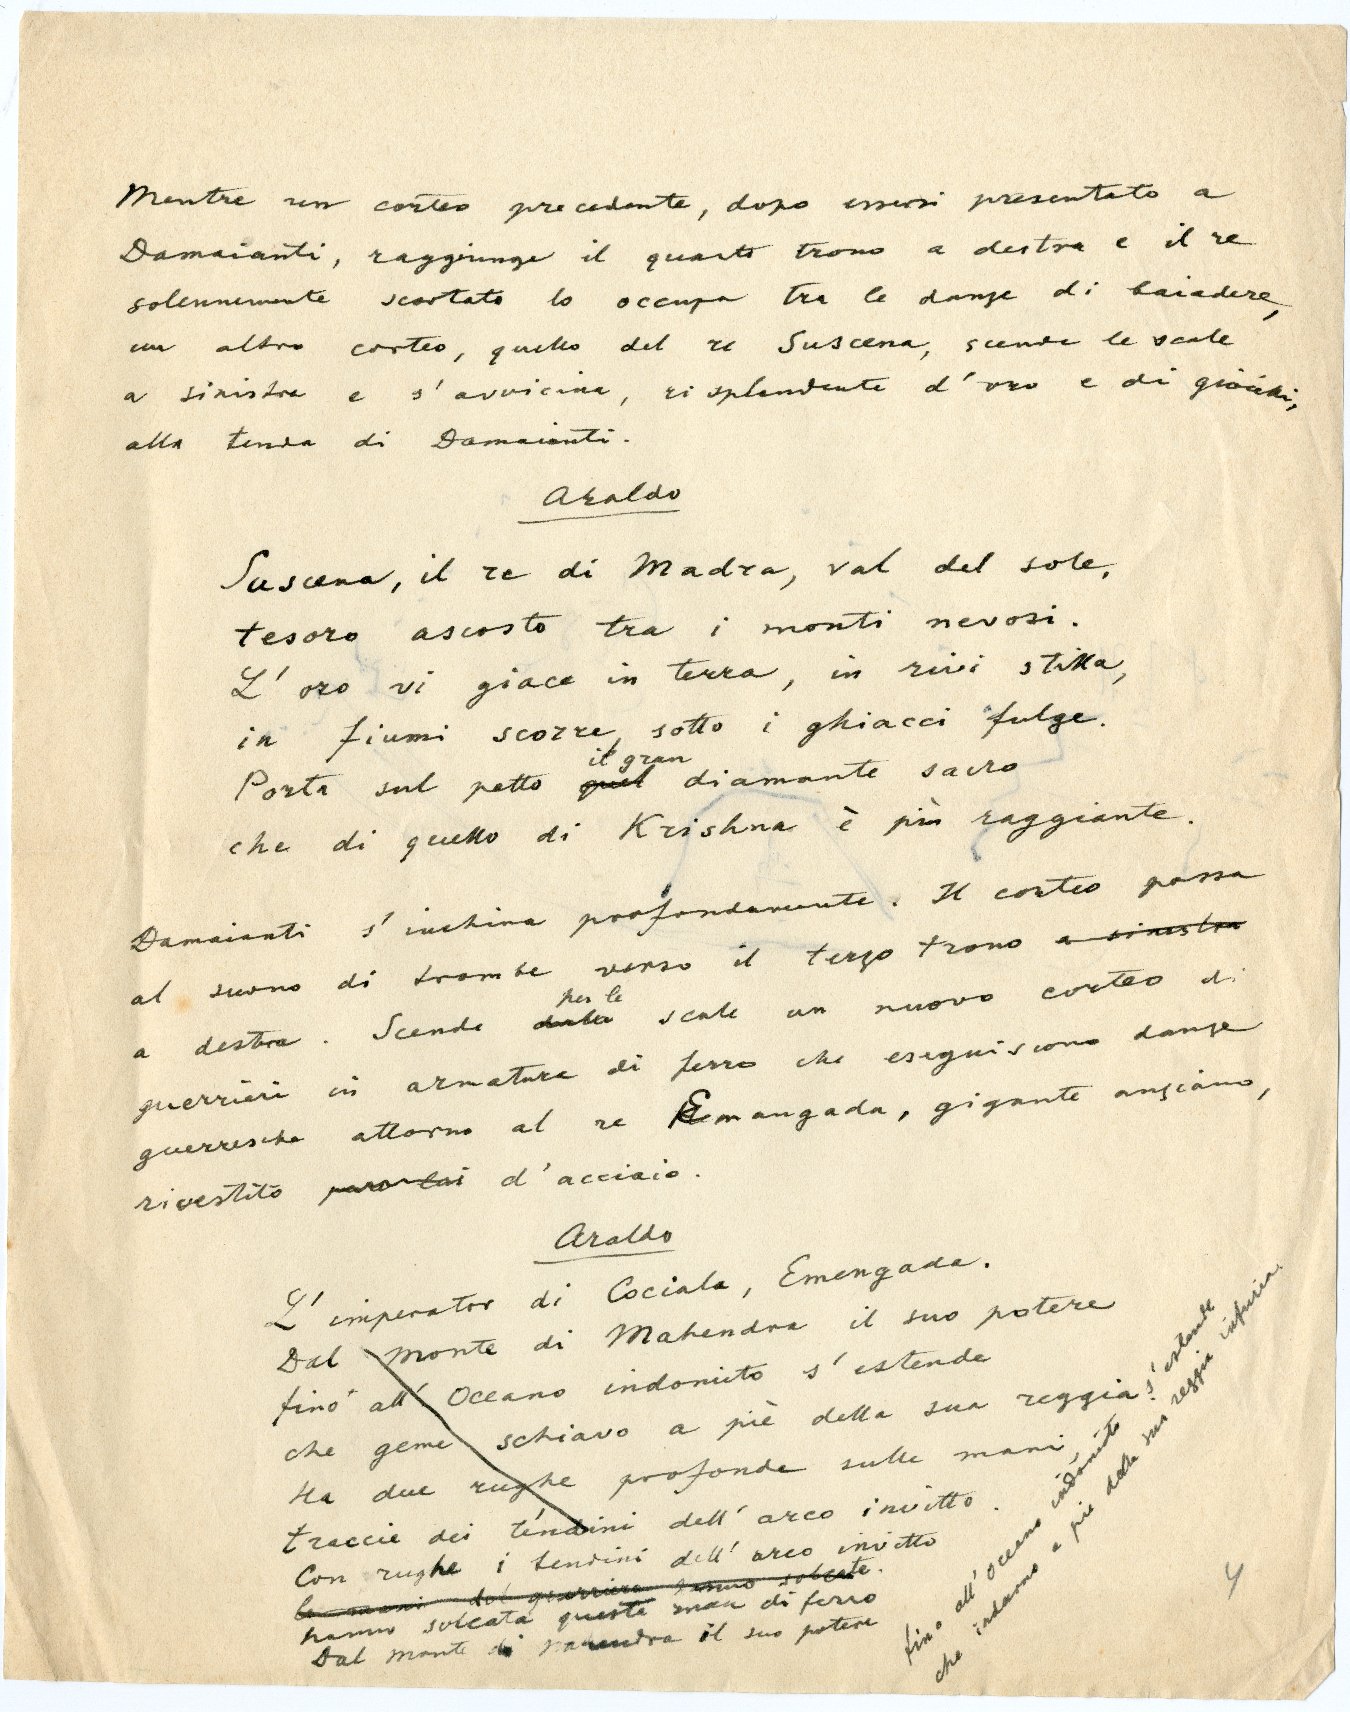 Mentre un corteo precedente, dopo essersi presentato a
Damaianti, raggiunge il quarto trono a destra e il re
solennemente scortato lo occupa tra le danze di baiadere,
un altro corteo, quello del re Suscena, scende le scale
a sinistra e s'avvicina, risplendente d'oro e di gioielli,
alla tenda di Damaianti.
Araldo
Suscena, il re di Madra, val del sole,
tesoro ascosto tra i monti nevosi.
L'oro vi giace in terra, in rivi stilla,
in fiumi scorre, sotto i ghiacci fulge.
il gran
Porta sul petto quel diamante sacro
che di quello di Krishna è più raggiante.
Damaianti s'inchina profondamente. Il corteo passa
al suono di trombe verso il terzo trono a sinistra
per le
a destra. Scende dalle scale un nuovo corteo di
guerrieri in armature di ferro che eseguiscono danze
guerresche attorno al re Emangada, gigante anziano,
rivestito d'acciaio.
Araldo
L'imperator di Cociala, Emengada.
Dal monte di Mahendra il suo potere
fino all'Oceano indomito s'estende
che geme schiavo a piè della sua reggia.
Ha due rughe profonde sulle mani,
traccie dei téndini dell'arco invitto.
Con rughe i tendini dell'arco invitto
le mani del guerriero hanno solcate.
hanno solcata questa man di ferro
Dal monte di Mahendra il suo potere
fino all'Oceano indomito s'estende
che indarno a piè della sua reggia infuria.
4